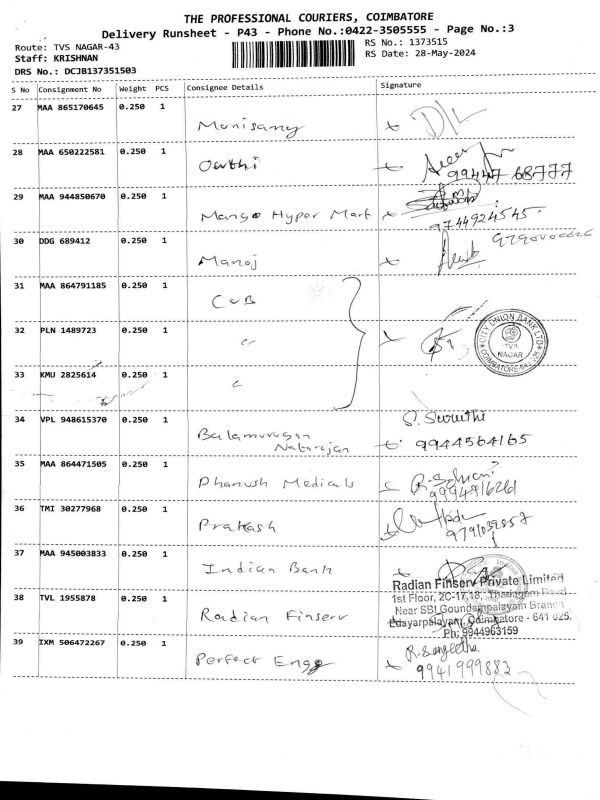 THE PROFESSIONAL COURIERS, COIMBATORE
Delivery Runsheet - P43 - Phone No.:0422-3505555 - Page No.:3
Route: TVS NAGAR-43
RS No.: 1373515
Staff: KRISHNAN
RS Date: 28-May-2024
DRS No.: DCJB137351503
S No Consignment No Weight PCS Consignee Details Signature
27 MAA 865170645 0.250 1 Munisamy
28 MAA 650222581 0.250 1 Oarthi 99447 68777
29 MAA 944850670 0.250 1 Mango Hyper Mart 9744924545
30 DDG 689412 0.250 1 Manoj
31 MAA 864791185 0.250 1 CUB
32 PLN 1489723 0.250 1 "
CITY UNION BANK LTD
TVS NAGAR
COIMBATORE
33 KMU 2825614 0.250 1 "
34 VPL 948615370 0.250 1 Balamurugan Natarajan S. Suruthi 9944564165
35 MAA 864471505 0.250 1 Dhanush Medicals
36 TMI 30277968 0.250 1 Prakash
37 MAA 945003833 0.250 1 Indian Bank
Radian Finserv Private Limited
1st Floor, 2C-17,18, Thadagam Road
38 TVL 1955878 0.250 1 Radian Finserv
Near SBI Goundampalayam Branch
Edayarpalayam, Coimbatore - 641 025.
Ph: 9944963159
39 IXM 506472267 0.250 1 Perfect Engg R. Sangeetha 9941999883